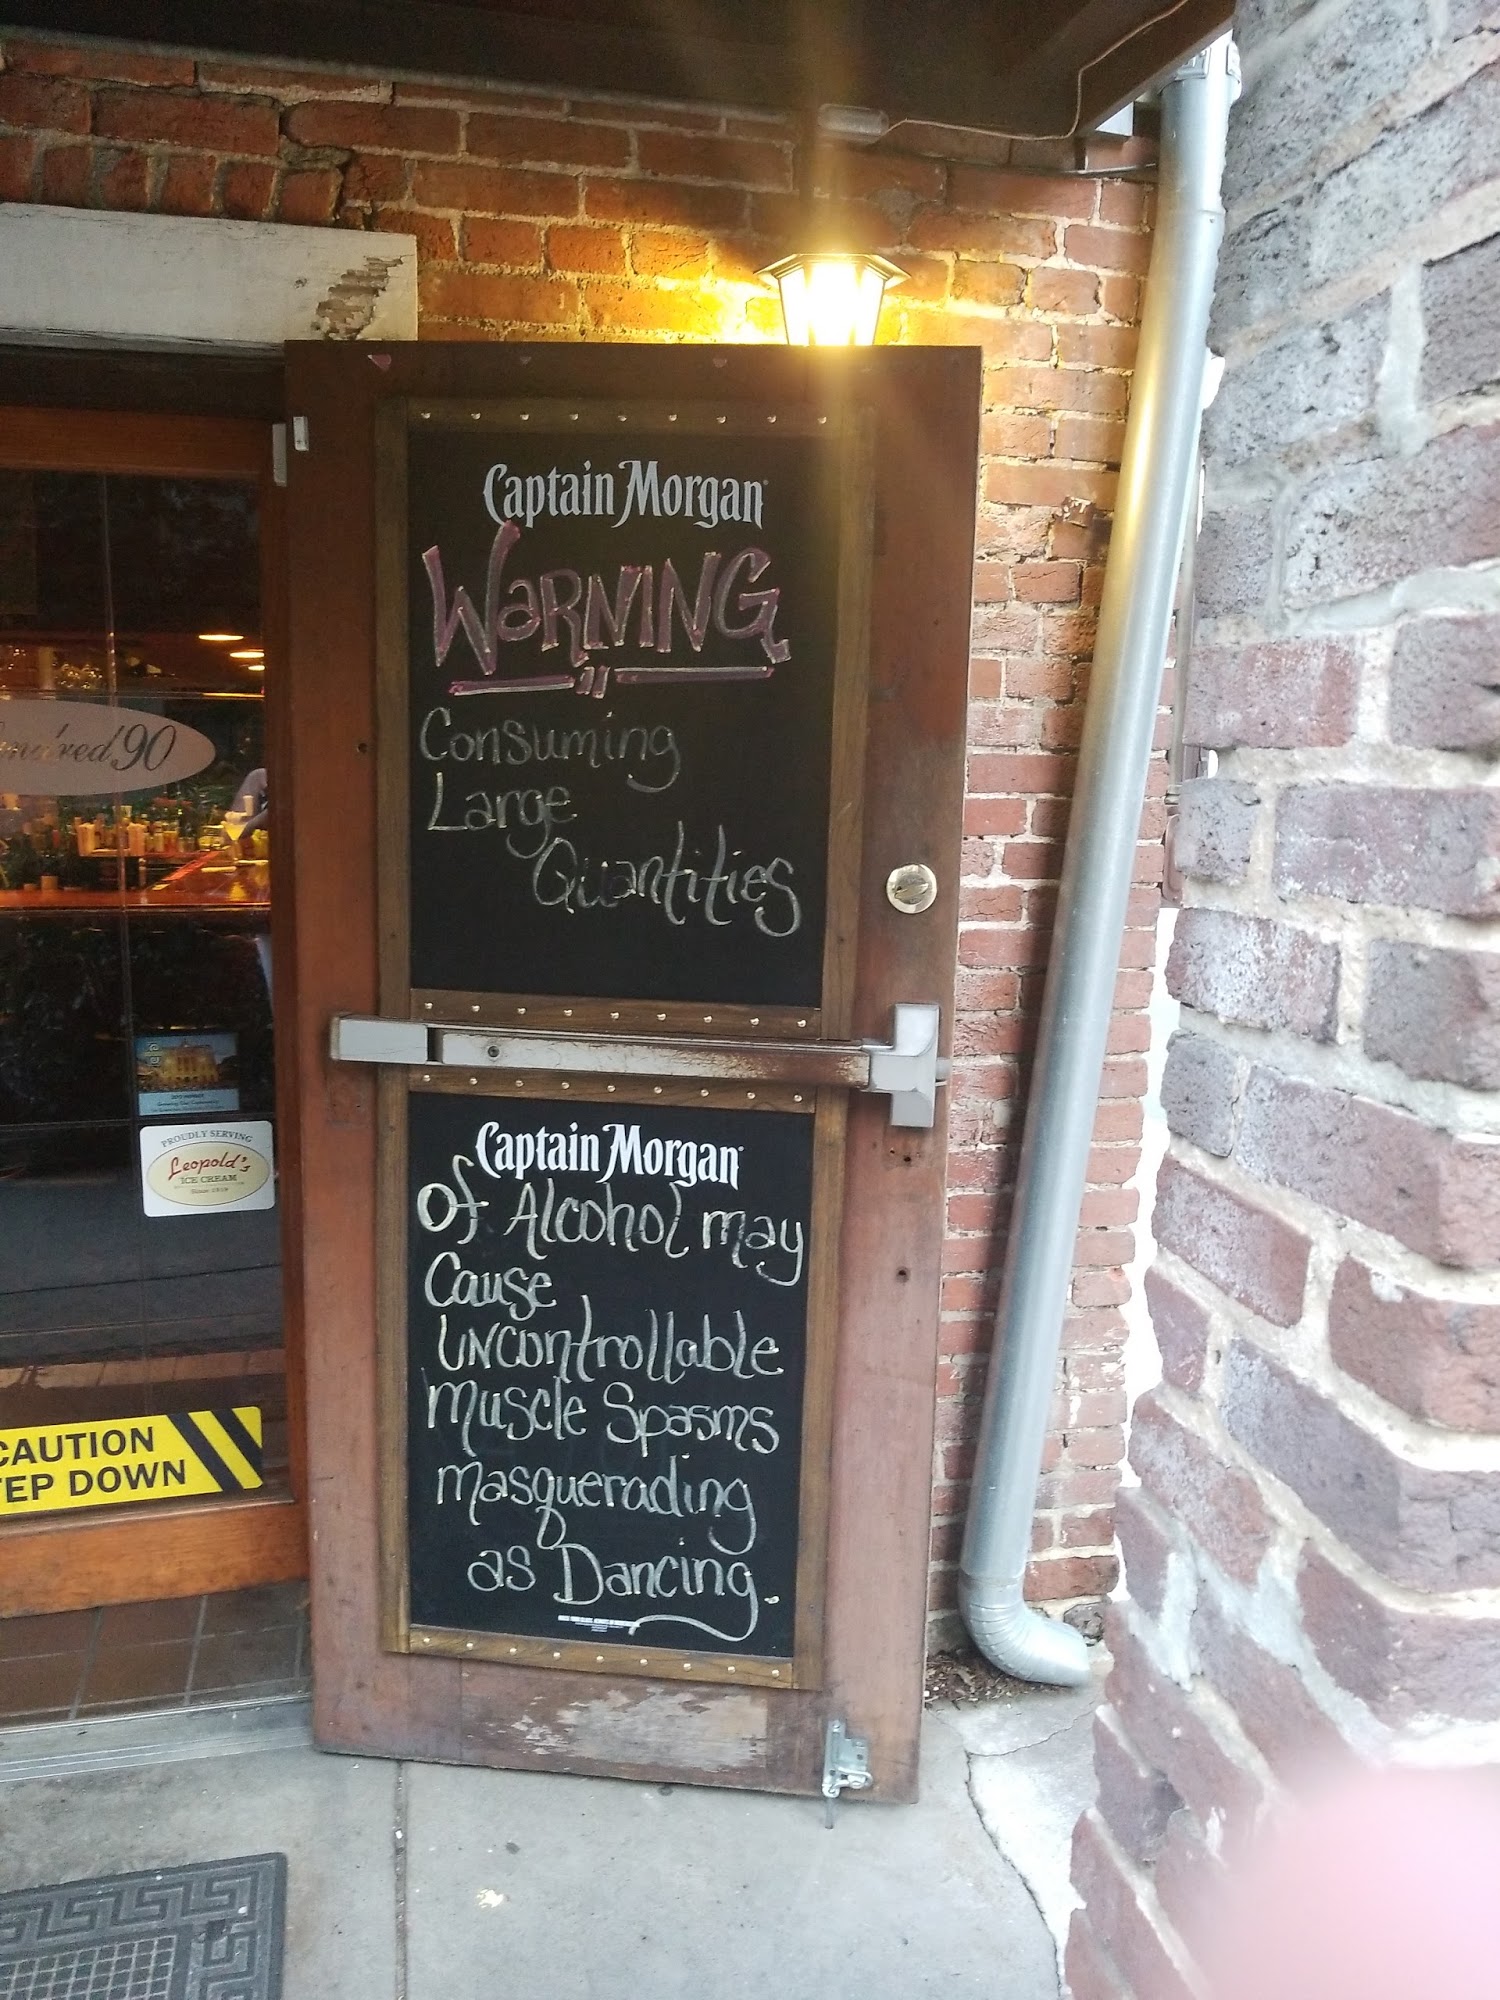 Captain Morgan
WARNING
Consuming
Large
Quantities
Captain Morgan
Of Alcohol may
Cause
UNcontrollable
Muscle Spasms
Masquerading
as Dancing.
90
PROUDLY SERVING
Leopold's
ICE CREAM
Since 1919
CAUTION
DOWN